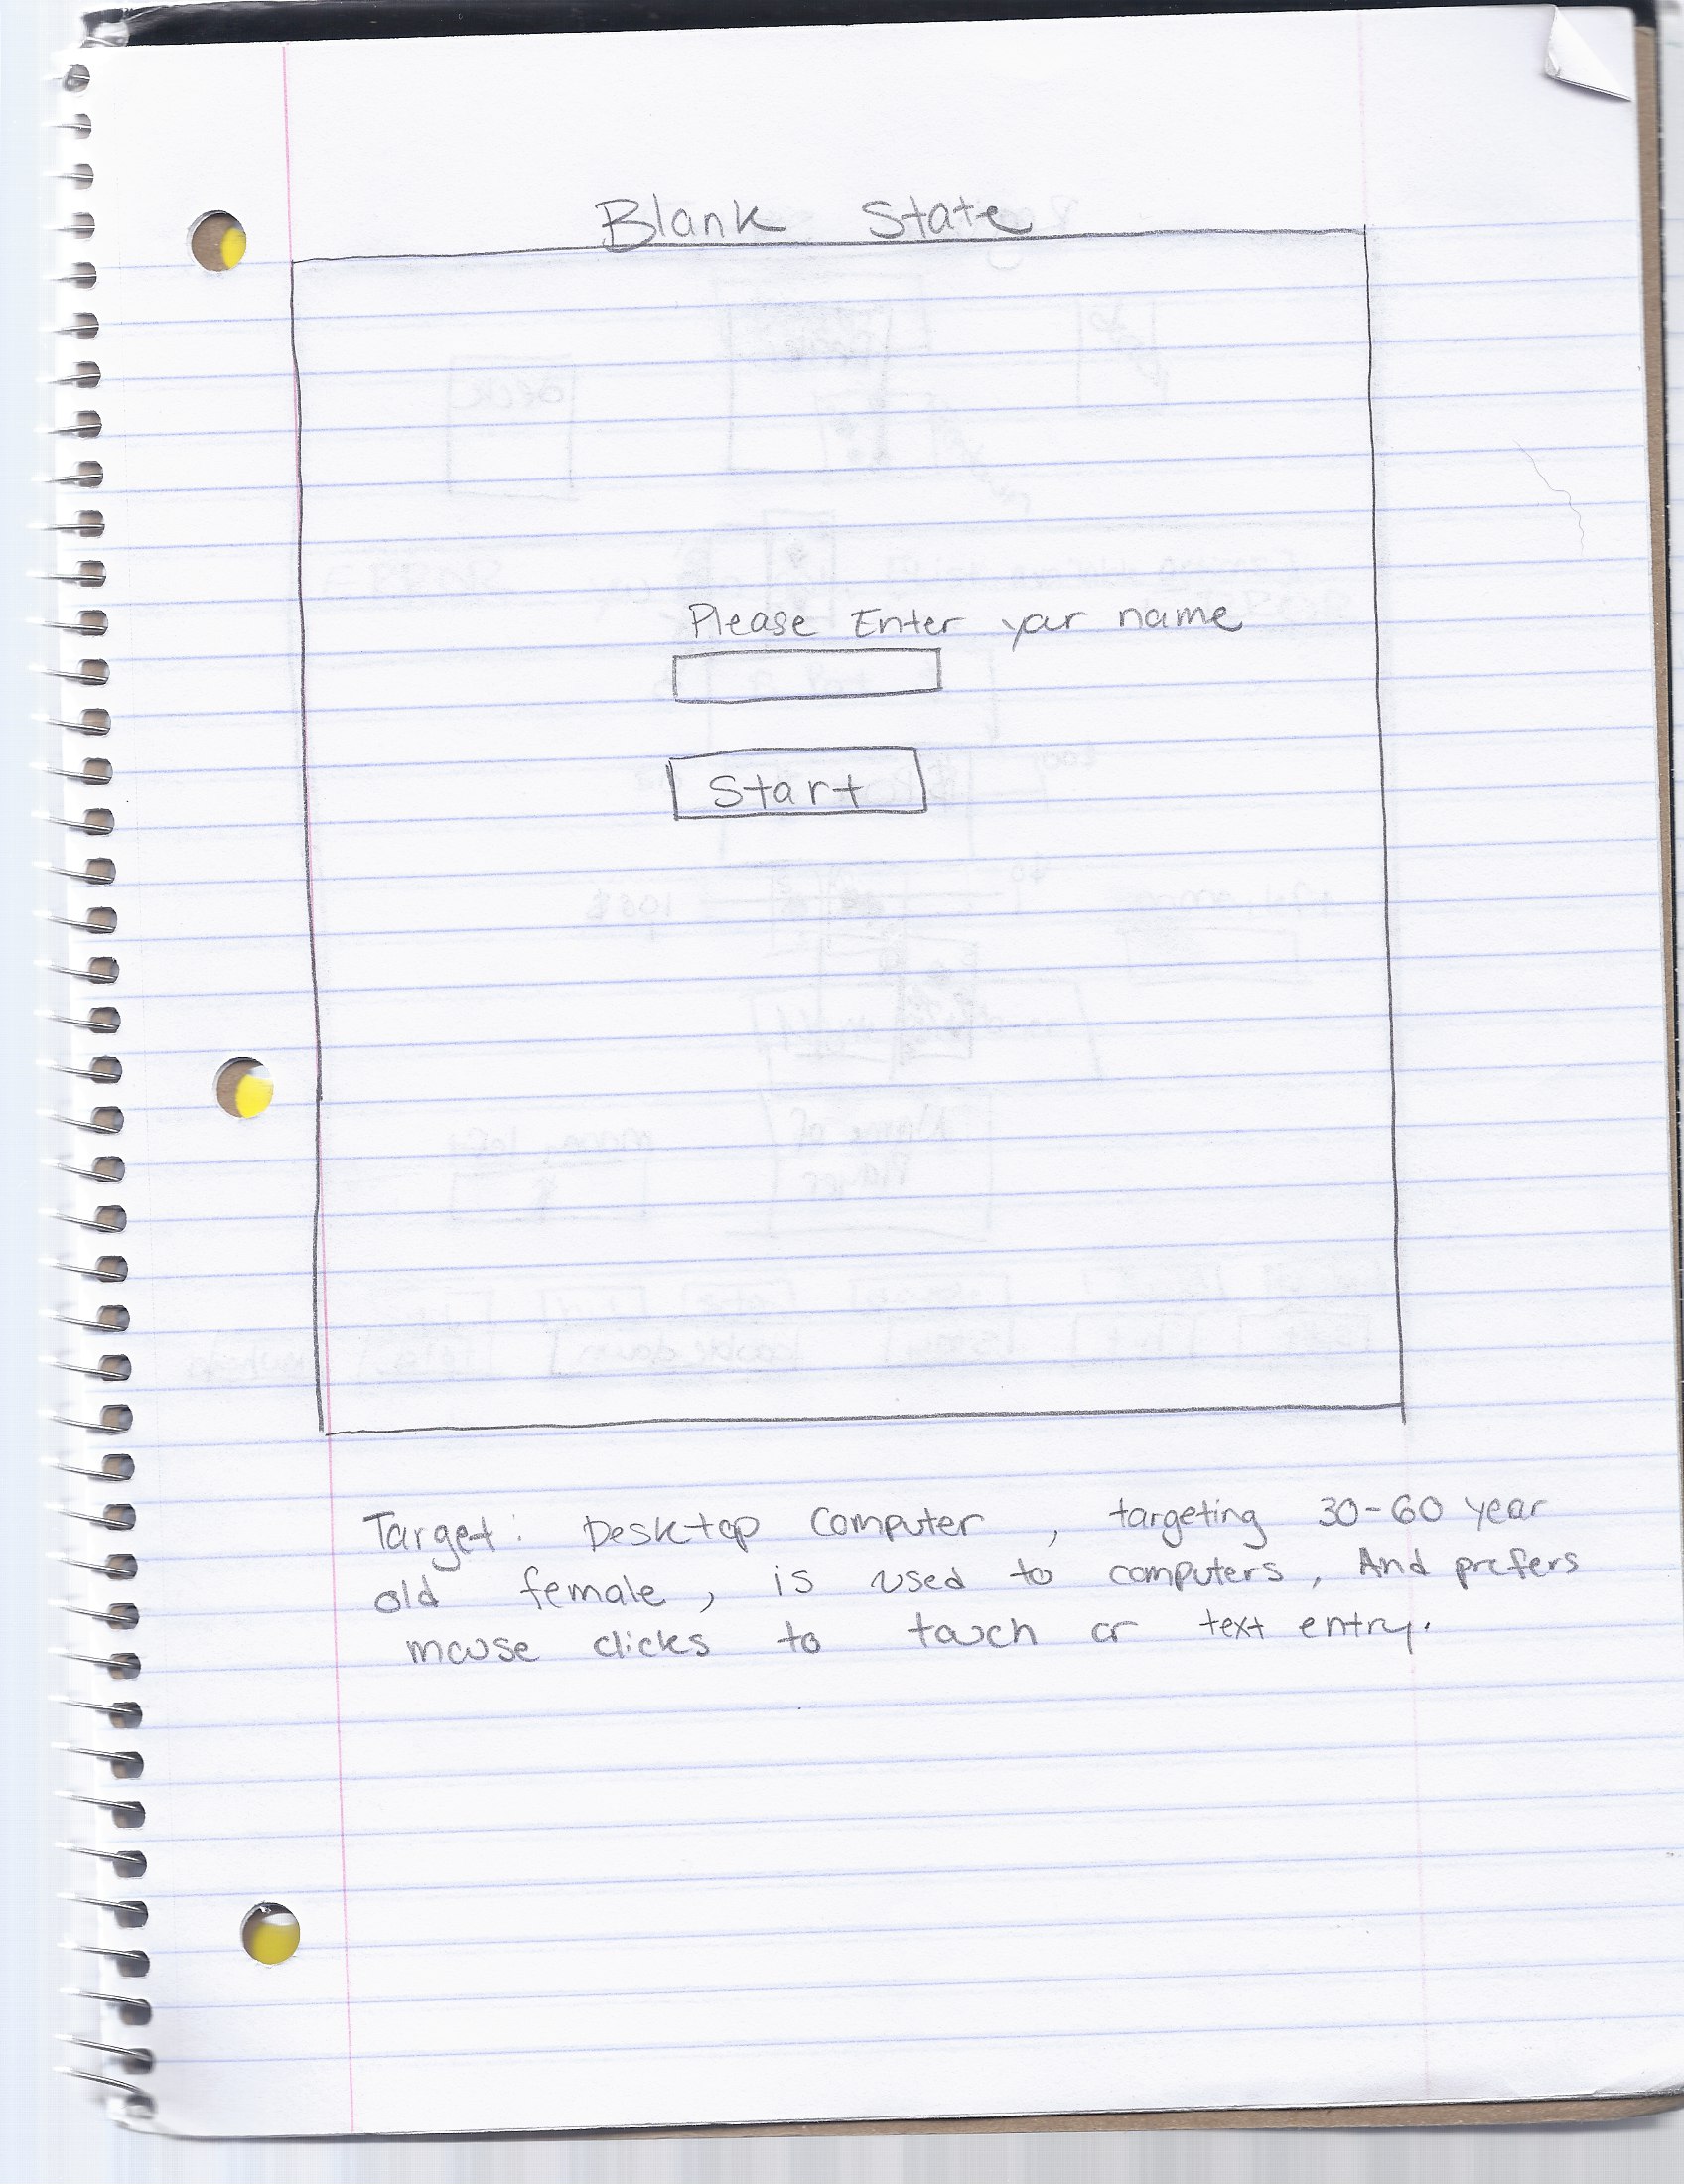 Blank State
Please Enter your name
Start
Target: Desktop Computer, targeting 30-60 year
old female, is used to computers, And prefers
mouse clicks to touch or text entry.